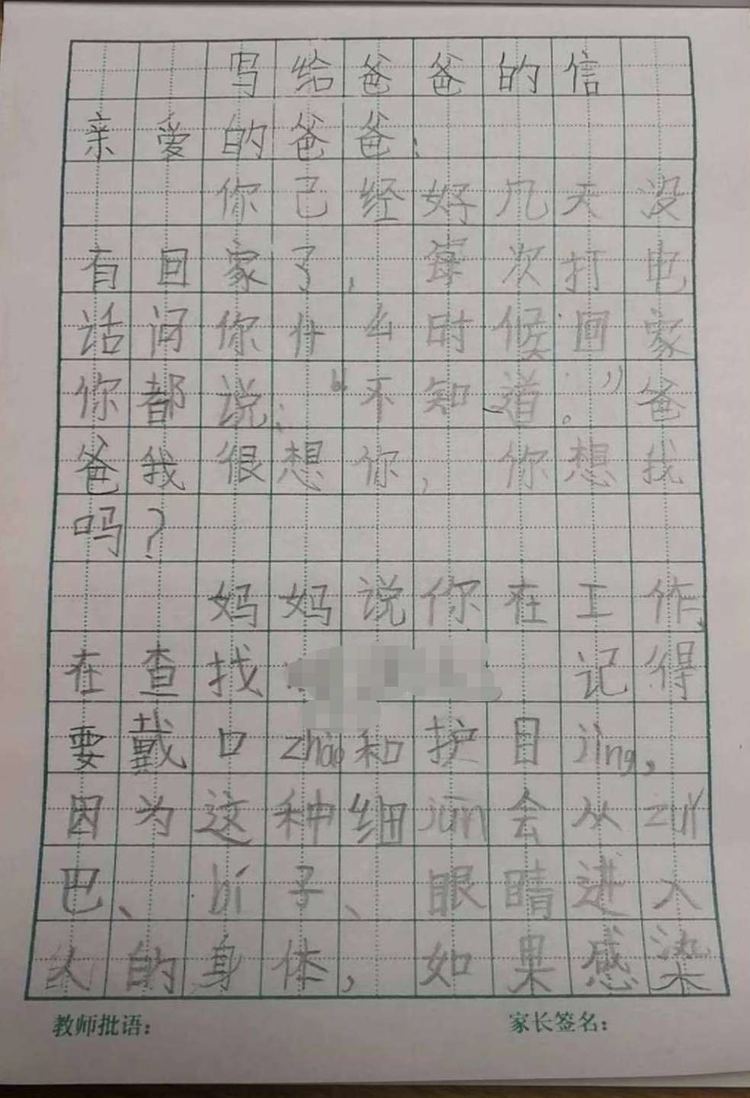 写给爸爸的信
亲爱的爸爸:
你己经好几天没
有回家了,每次打电
话问你什么时候回家
你都说:“不知道。”爸
爸我很想你,你想我
吗?
妈妈说你在工作,
在查找 记得
要戴口zhào和护目jìng,
因为这种细jūn会从zuǐ
巴、bí子、眼睛进入
人的身体,如果感染
教师批语: 家长签名: